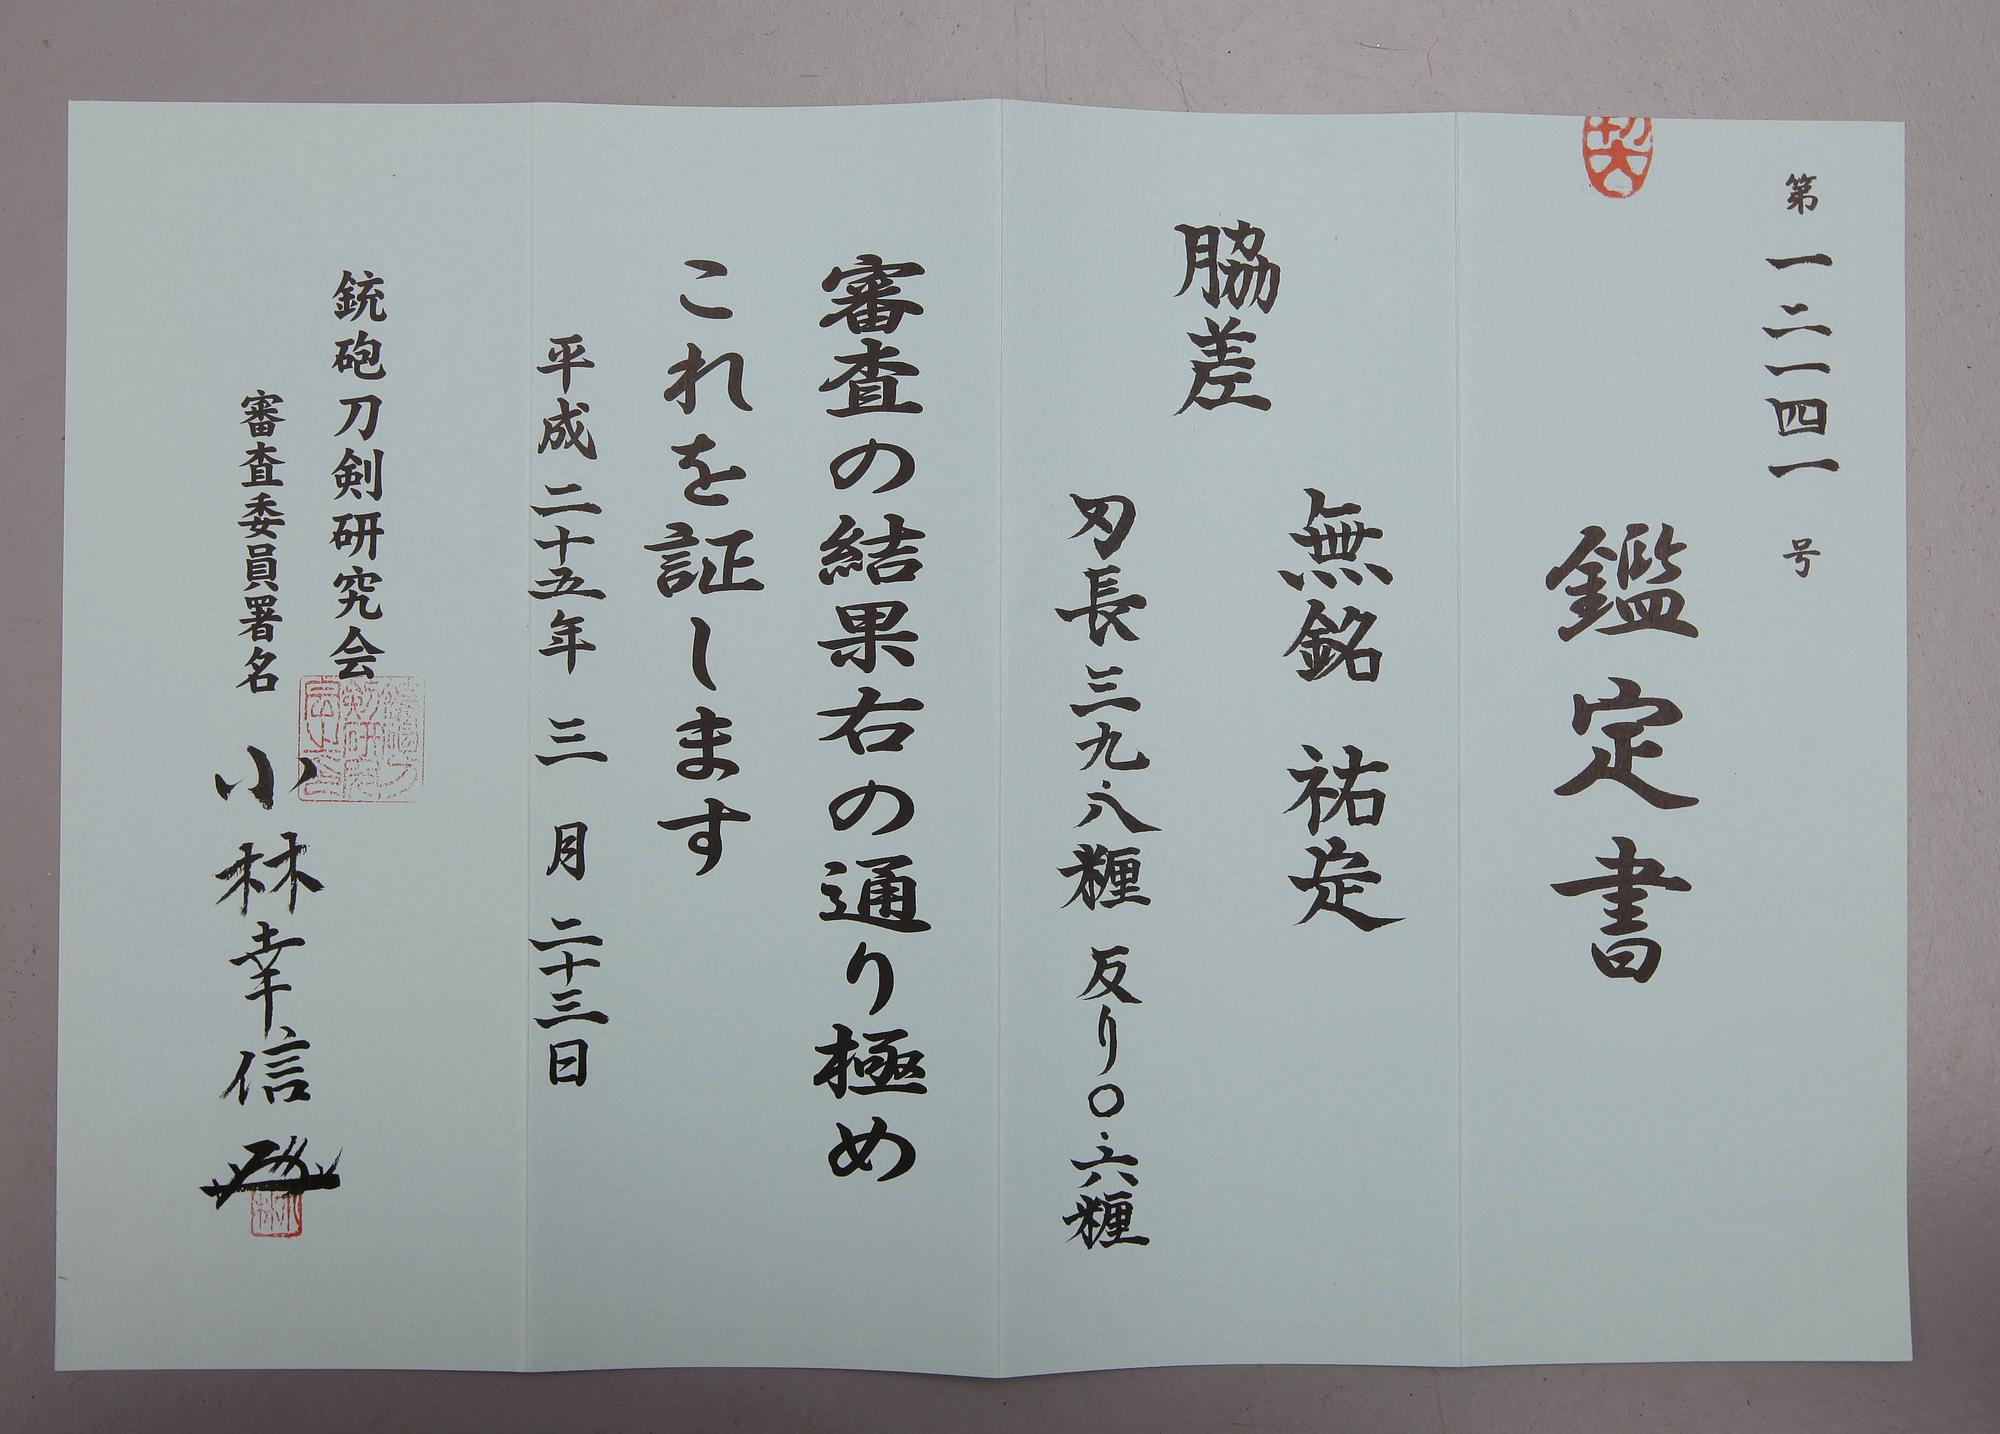 第一二一四一号
鑑定書
無銘 祐定
脇差
刃長三九.八糎 反り〇.六糎
審査の結果右の通り極め
これを証します
平成二十五年 三 月 二十三日
銃砲刀剣研究会
審査委員署名 小林幸信